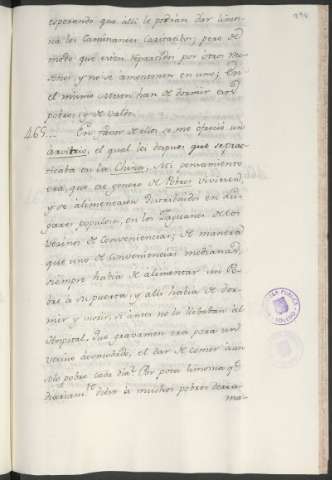 esperando que alli le podian dar limos-
na los Caminantes Caritativos; pero de
modo que estén separados por otros pue-
blos y no se amontonen en uno; En
el mismo han de dormir estos
pobres, y de valde.
465. En favor de ellos se me ofreció un
arvitrio, el qual lei despues que se prac-
ticaba en la China. Mi pensamiento
era, que ese genero de Pobres viviesen,
y se alimentasen distribuidos en Lu-
gares populosos, en los Zaguanes de los
vecinos de conveniencias; de manera
que uno de conveniencias medianas,
siempre habia de alimentar un Po-
bre à su puerta, y alli habia de dor-
mir y morir, si antes no le llebaban al
Hospital. Que gravamen era para un
vecino acomodado, el dar de comer à un
solo pobre cada dia? Por poca limosna qe.
diariamte. diese à muchos pobres derra-
ma-